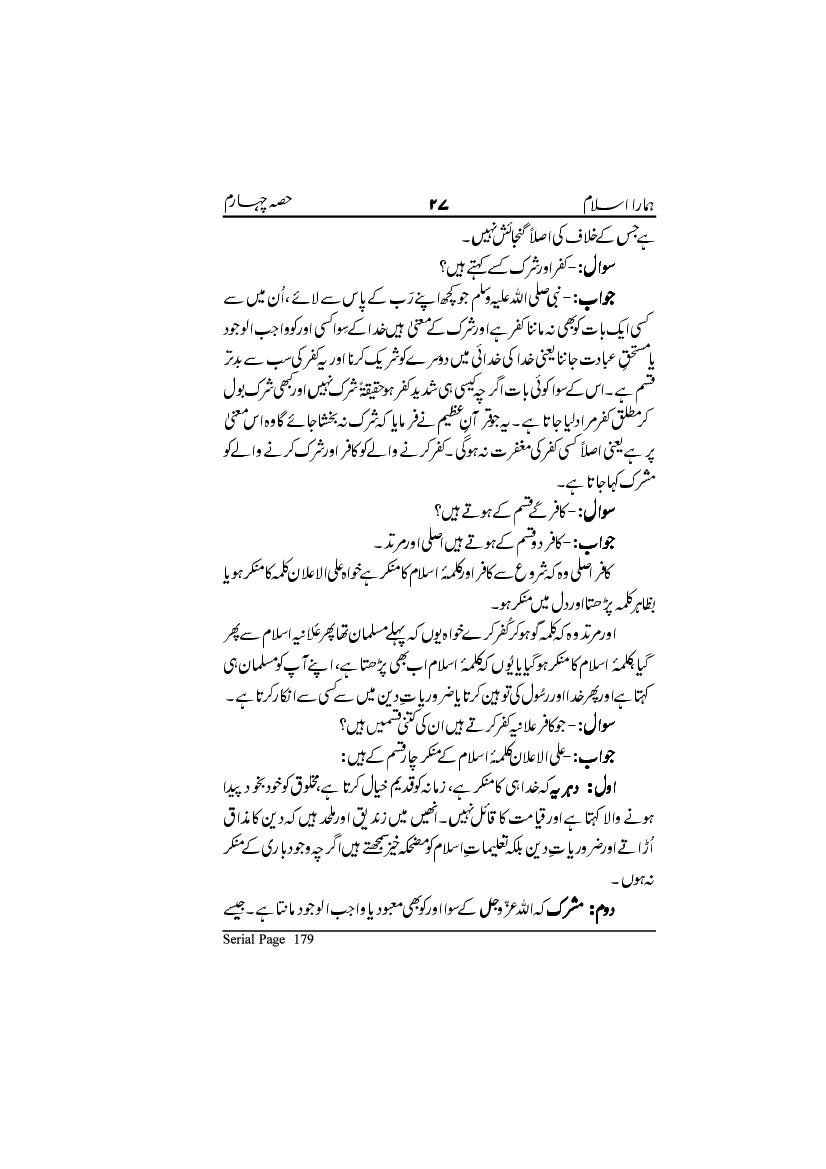 ہمارا اسلام ۲۷ حصہ چہارم
ہے جس کے خلاف کی اصلاً گنجائش نہیں ۔
سوال:- کفر اور شرک کسے کہتے ہیں؟
جواب:- نبی صلی اللہ علیہ وسلم جو کچھ اپنے رَب کے پاس سے لائے ، اُن میں سے
کسی ایک بات کو بھی نہ ماننا کفر ہے اور شرک کے معنیٰ ہیں خدا کے سِوا کسی اور کو واجب الوجود
یا مستحقِ عبادت جاننا یعنی خدا کی خدائی میں دوسرے کو شریک کرنا اور یہ کفر کی سب سے بدتر
قسم ہے ۔ اس کے سوا کوئی بات اگرچہ کیسی ہی شدید کفر ہو حقیقۃً شرک نہیں اور کبھی شرک بول
کر مطلق کفر مراد لیا جاتا ہے ۔ یہ جو قرآنِ عظیم نے فرمایا کہ شرک نہ بخشا جائے گا وہ اس معنیٰ
پر ہے یعنی اصلاً کسی کفر کی مغفرت نہ ہوگی ۔ کفر کرنے والے کو کافر اور شرک کرنے والے کو
مشرک کہا جاتا ہے ۔
سوال:- کافر کے قسم کے ہوتے ہیں؟
جواب:- کافر دو قسم کے ہوتے ہیں اصلی اور مرتد ۔
کافر اصلی وہ کہ شروع سے کافر اور کلمۂ اسلام کا منکر ہے خواہ علی الاعلان کلمہ کا منکر ہو یا
بظاہر کلمہ پڑھتا اور دل میں منکر ہو ۔
اور مرتد وہ کہ کلمہ گو ہو کر کُفر کرے خواہ یوں کہ پہلے مسلمان تھا پھر عَلانیہ اسلام سے پھر
گیا ، کلمۂ اسلام کا منکر ہو گیا یا یُوں کہ کلمۂ اسلام اب بھی پڑھتا ہے ، اپنے آپ کو مسلمان ہی
کہتا ہے اور پھر خدا اور رسُول کی توہین کرتا یا ضروریاتِ دین میں سے کسی سے انکار کرتا ہے ۔
سوال:- جو کافر علانیہ کفر کرتے ہیں ان کی کتنی قسمیں ہیں؟
جواب:- علی الاعلان کلمۂ اسلام کے منکر چار قسم کے ہیں :
اول: دہریہ کہ خدا ہی کا منکر ہے ، زمانہ کو قدیم خیال کرتا ہے ، مخلوق کو خود بخود پیدا
ہونے والا کہتا ہے اور قیامت کا قائل نہیں ۔ انھیں میں زندیق اور ملحد ہیں کہ دین کا مذاق
اُڑاتے اور ضروریاتِ دین بلکہ تعلیماتِ اسلام کو مضحکہ خیز سمجھتے ہیں اگرچہ وجود باری کے منکر
نہ ہوں ۔
دوم: مشرک کہ اللہ عزّوجل کے سوا اور کو بھی معبود یا واجب الوجود مانتا ہے ۔ جیسے
Serial Page 179